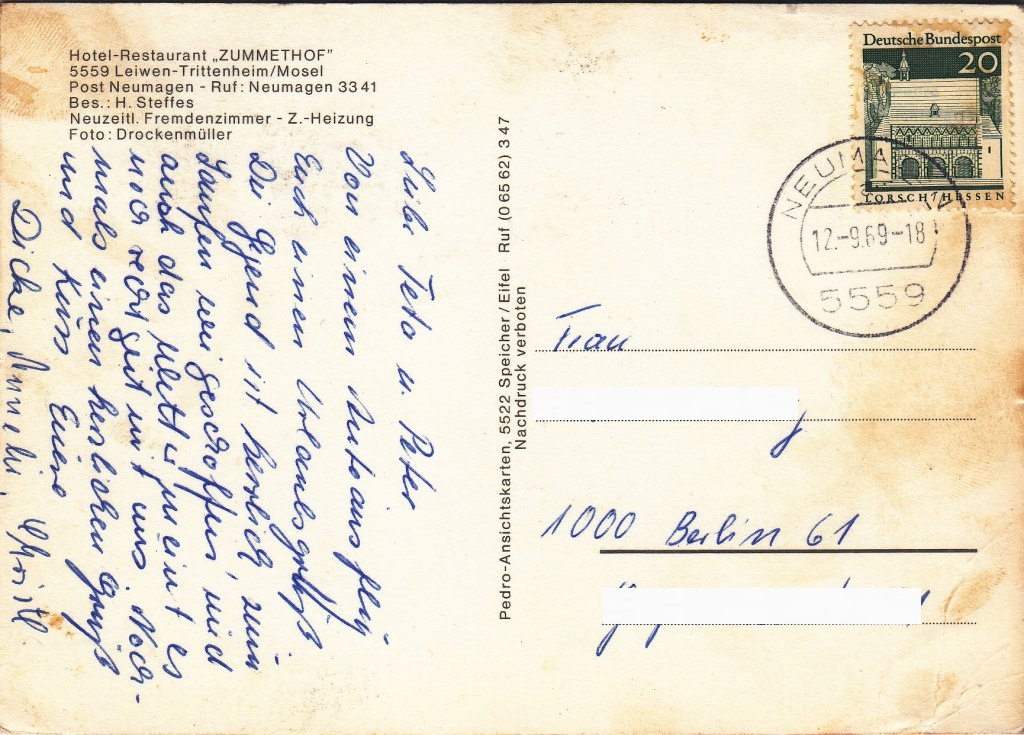 Hotel-Restaurant „ZUMMETHOF"
5559 Leiwen-Trittenheim/Mosel
Post Neumagen - Ruf: Neumagen 33 41
Bes.: H. Steffes
Neuzeitl. Fremdenzimmer - Z.-Heizung
Foto: Drockenmüller
Liebe Teta u. Peter
Von einem Autoausflug
Euch einen Urlaubsgruß
Die Gegend ist herlich zum
Laufen wie geschaffen, und
auch das Wetter meint es
noch recht gut mit uns. Noch-
mals einen herslichen Gruß
und Kuss Eure
Dicke, Christl.
Pedro-Ansichtskarten, 5522 Speicher/Eifel Ruf (0 65 62) 3 47
Nachdruck verboten
Deutsche Bundespost
20
LORSCH/HESSEN
NEUMA
12.-9.69-18
5559
Frau
1000 Berlin 61